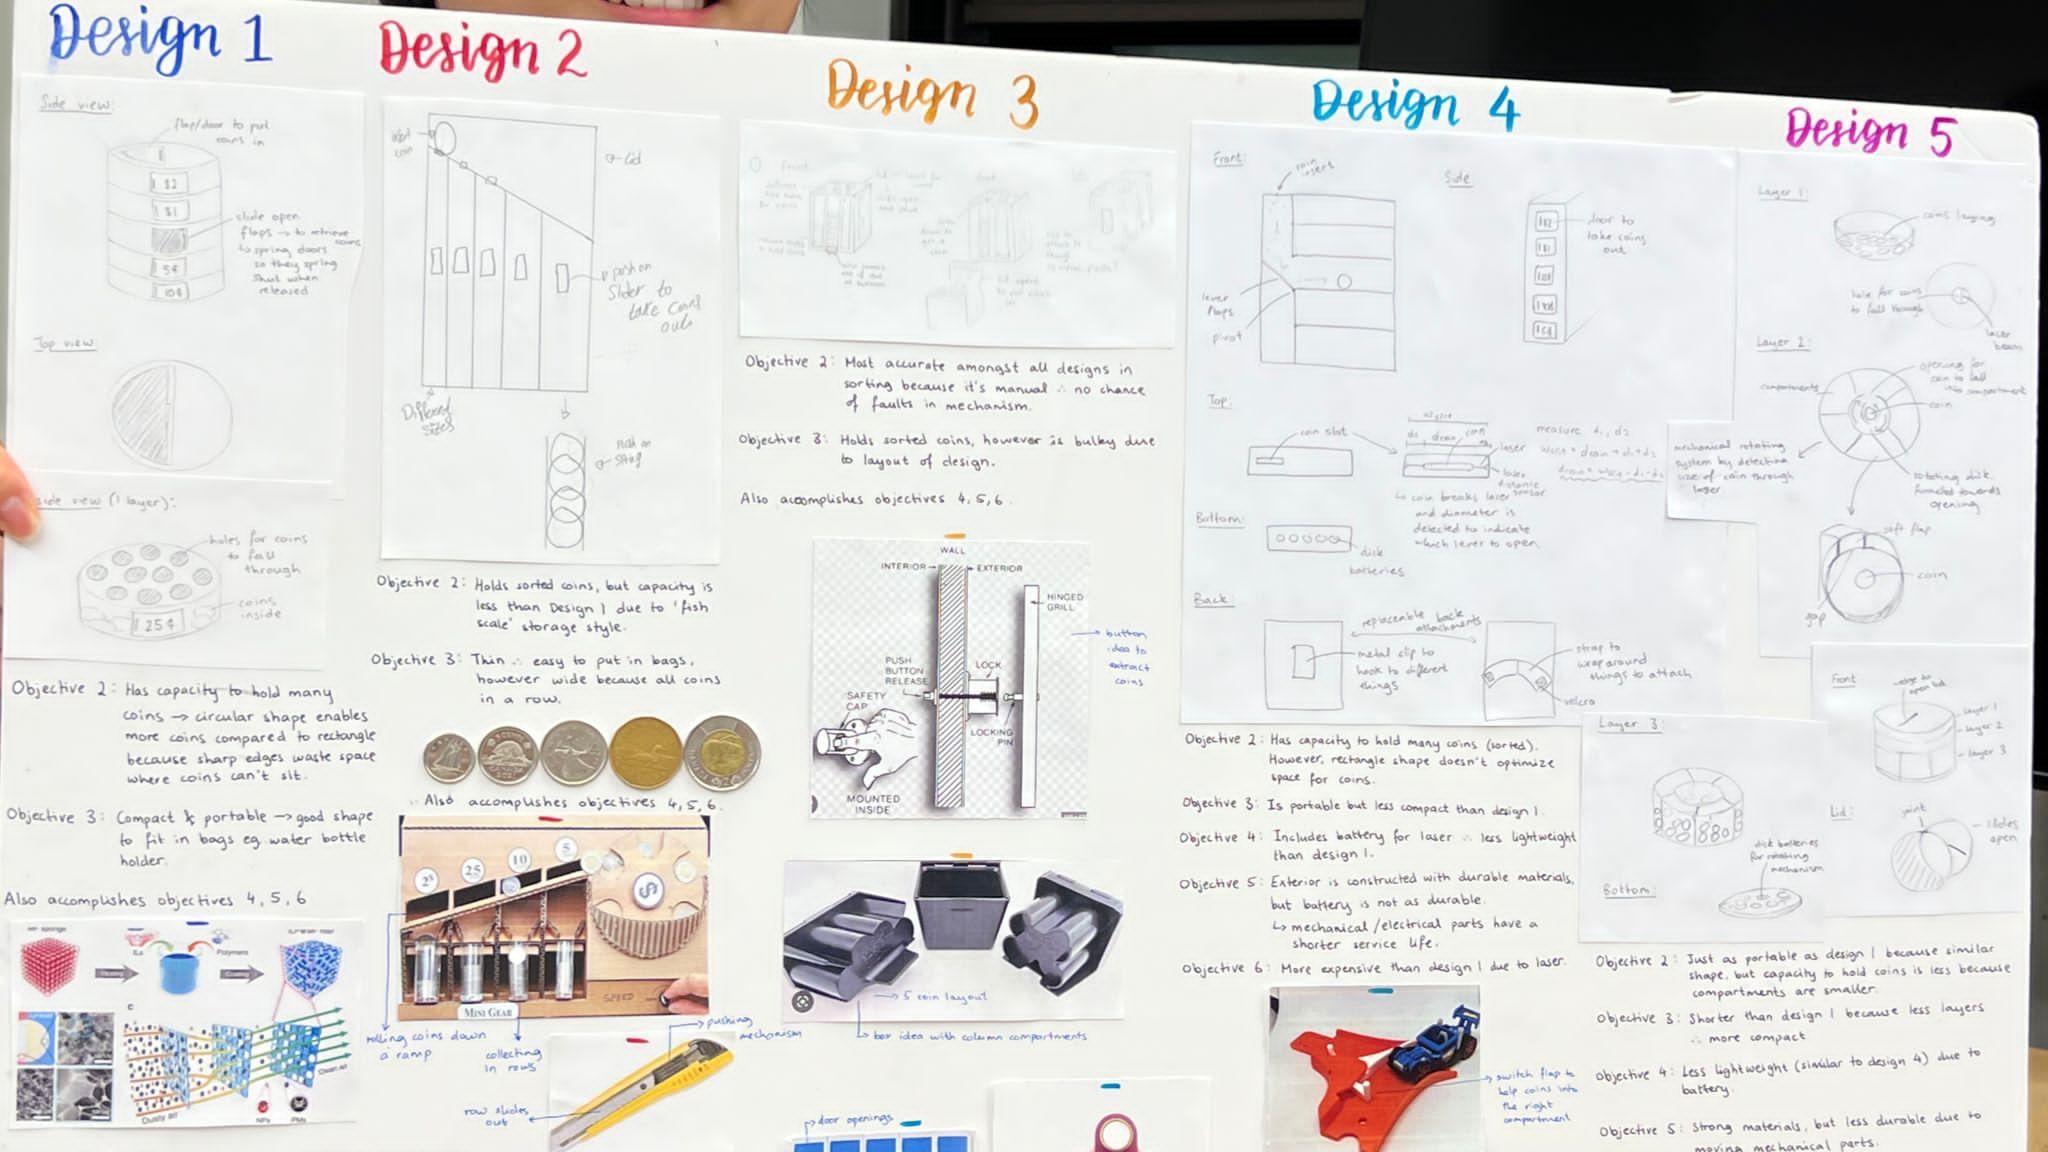 Design 1
Side view:
flap/door to put
coins in
$2
$1
5¢
10¢
slide open
flaps → to retrieve
coins
↳ spring doors
so they spring
shut when
released
Top view:
side view (1 layer):
holes for coins
to fall
through
coins
inside
25¢
Objective 2: Has capacity to hold many
coins → circular shape enables
more coins compared to rectangle
because sharp edges waste space
where coins can't sit.
Objective 3: Compact & portable → good shape
to fit in bags eg. water bottle
holder.
Also accomplishes objectives 4, 5, 6
sponge
ILs
Polymers
Coating
c
Dusty air
Clean air
NPs
PMs
Design 2
coin
Lid
push on
slider to
take coins
out
Different
sizes
push on
string
Objective 2: Holds sorted coins, but capacity is
less than Design 1 due to 'fish
scale' storage style.
Objective 3: Thin ∴ easy to put in bags,
however wide because all coins
in a row.
Also accomplishes objectives 4, 5, 6.
25
10
5
$
SPEED
MINI GEAR
rolling coins down
a ramp
collecting
in rows
pushing
mechanism
row slides
out
Design 3
Front
Objective 2: Most accurate amongst all designs in
sorting because it's manual ∴ no chance
of faults in mechanism.
Objective 3: Holds sorted coins, however is bulky due
to layout of design.
Also accomplishes objectives 4, 5, 6.
WALL
INTERIOR
EXTERIOR
HINGED
GRILL
PUSH
BUTTON
RELEASE
LOCK
SAFETY
CAP
LOCKING
PIN
MOUNTED
INSIDE
button
idea to
extract
coins
5 coin layout
box idea with column compartments
door openings
Design 4
Front:
coin
insert
lever
flaps
pivot
Side
door to
take coins
out
Top:
coin slot
d1
dcoin
laser
laser
distance
sensor
measure d1, d2
wslit = dcoin + d1 + d2
dcoin = wslit - d1 - d2
↳ coin breaks laser
and diameter is
detected to indicate
which lever to open.
Bottom:
disk
batteries
Back:
replaceable back
attachments
metal clip to
hook to different
things
strap to
wrap around
things to attach
velcro
Objective 2: Has capacity to hold many coins (sorted).
However, rectangle shape doesn't optimize
space for coins.
Objective 3: Is portable but less compact than design 1.
Objective 4: Includes battery for laser ∴ less lightweight
than design 1.
Objective 5: Exterior is constructed with durable materials,
but battery is not as durable.
↳ mechanical/electrical parts have a
shorter service life.
Objective 6: More expensive than design 1 due to laser.
switch flap to
help coins into
the right
compartment
Design 5
Layer 1:
coins laying
hole for coins
to fall through
laser
beam
Layer 2:
compartments
opening for
coin to fall
into compartment
coin
mechanical rotating
system by detecting
size of coin through
laser
rotating disk
funneled towards
opening
soft flap
coin
gap
Layer 3
disk batteries
for rotating
mechanism
Bottom:
Front
edge to
open lid
layer 1
layer 2
layer 3
Lid:
joint
slides
open
Objective 2: Just as portable as design 1 because similar
shape, but capacity to hold coins is less because
compartments are smaller.
Objective 3: Shorter than design 1 because less layers
∴ more compact
Objective 4: Less lightweight (similar to design 4) due to
battery.
Objective 5: Strong materials, but less durable due to
moving mechanical parts.